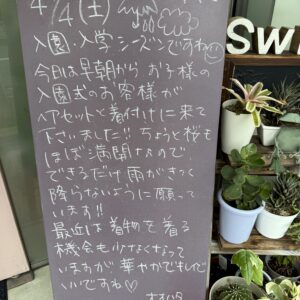 4/4(土)
入園・入学シーズンですね
今日は早朝から お子様の
入園式のお客様が
ヘアセットと着付けに来て
下さいました!! ちょうど桜も
ほぼ満開なので
できるだけ雨がきつく
降らないように願って
います!!
最近は着物を着る
機会も少なくなって
いますが 華やかでとても
いいですね♡
Sw